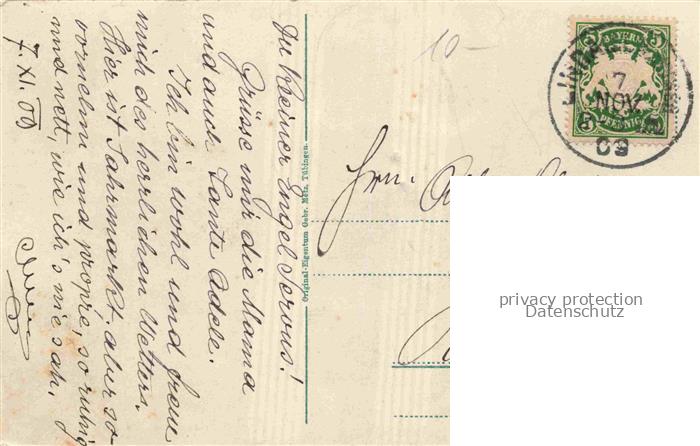 Du kleiner Engel Servus!
Grüsse mir die Mama
und auch Tante Adele.
Ich bin wohl und freue
mich des herrlichen Wetters.
Hier ist Jahrmarkt. aber so
vornehm und propre, so ruhig
und nett, wie ich's nie sah.
7. XI. 09
Original-Eigentum Gebr. Metz, Tübingen.
10-
BAYERN
5 5
5
PFENNIG
7
NOV
09
Hrn.
privacy protection
Datenschutz